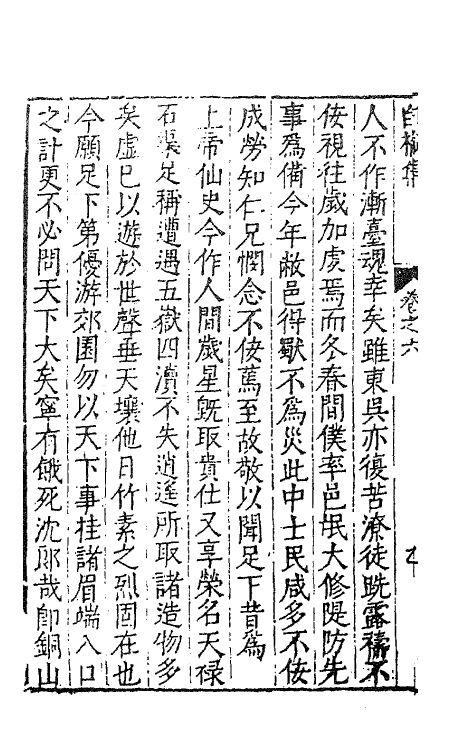 白榆集
卷之六
人不作漸臺魂幸矣雖東吳亦復苦潦徒跣露禱不
佞視往歲加虔焉而冬春間僕率邑氓大修隄防先
事為備今年敝邑得歉不為災此中士民咸多不佞
成勞知仁兄憫念不佞萬至故敬以聞足下昔為
上帝仙史今作人間歲星既取貴仕又享榮名天祿
石渠足稱遭遇五嶽四瀆不失逍遙所取諸造物多
矣虛已以遊於世聲垂天壤他日竹素之烈固在也
今願足下第優游郊園勿以天下事挂諸眉端入口
之計更不必問天下大矣寧有餓死沈郎哉卽銅山